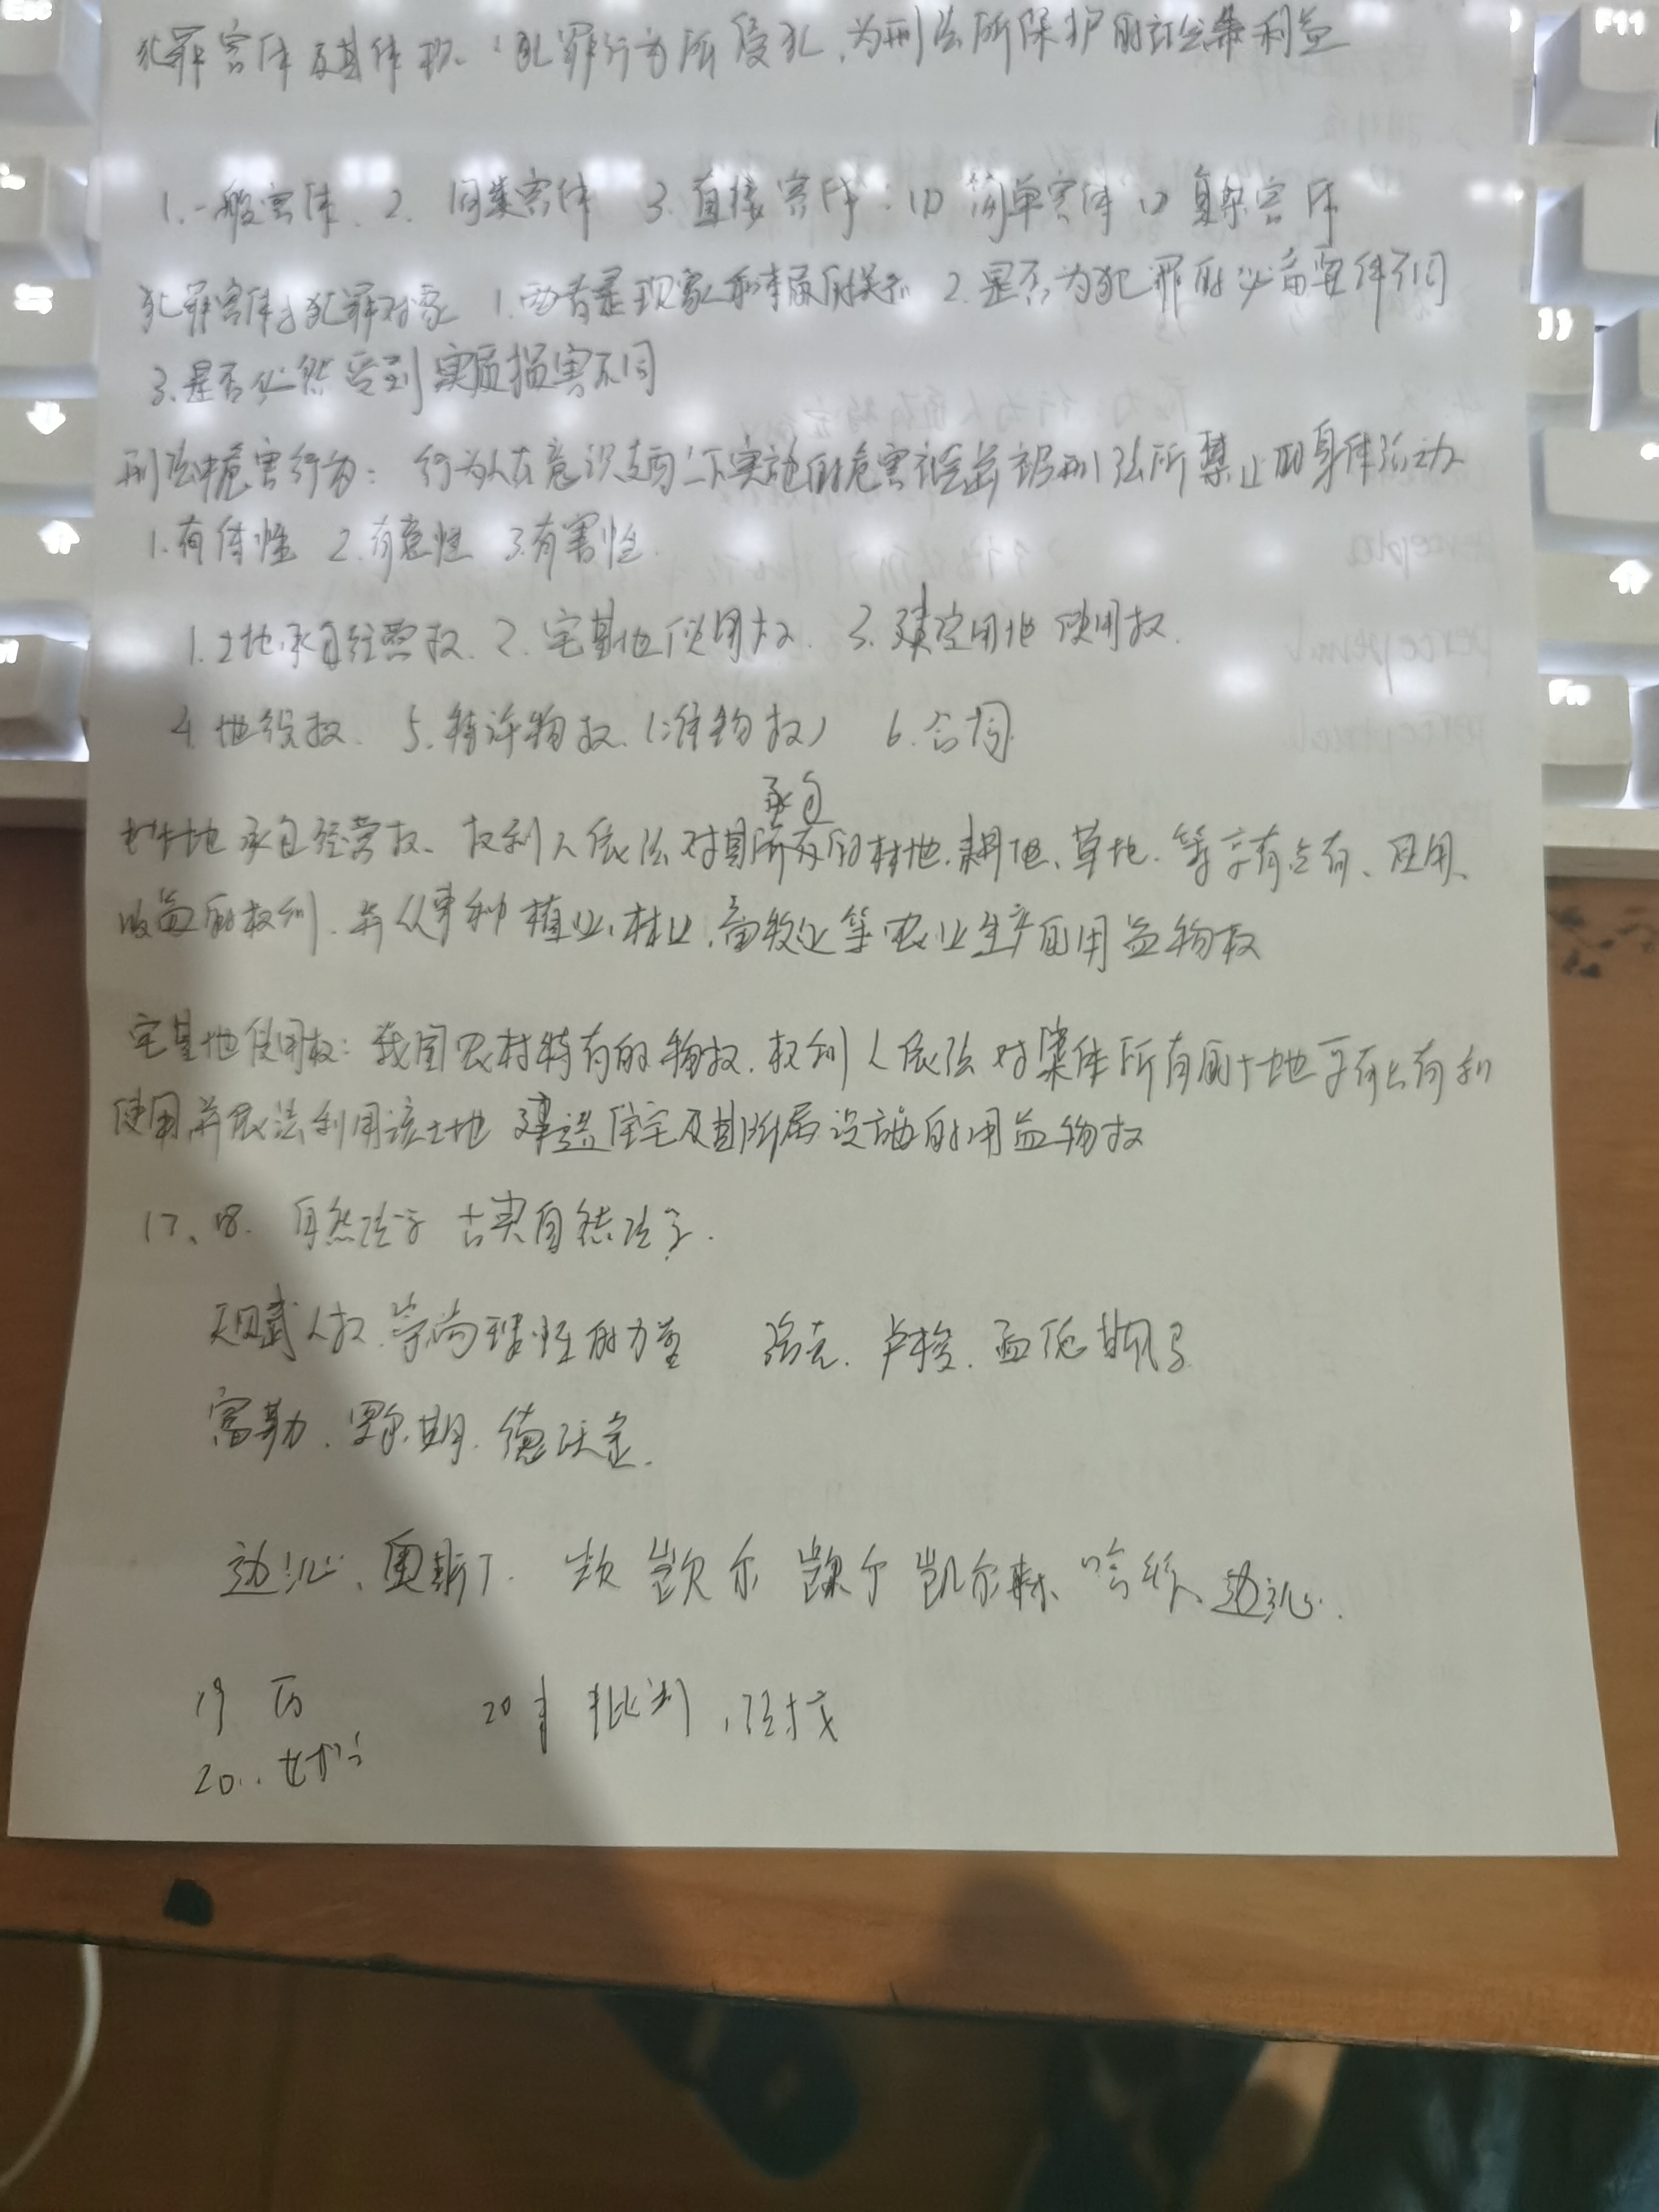 犯罪客体及其体现:犯罪行为所侵犯,为刑法所保护的社会利益
1.一般客体、2.同类客体 3.直接客体:(1)简单客体(2)复杂客体
犯罪客体与犯罪对象 1.两者是现象和本质的关系 2.是否为犯罪的必备要件不同
3.是否必然受到实质损害不同
刑法中危害行为:行为人在意识支配下实施的危害社会并被刑法所禁止的身体活动
1.有体性 2.有意性 3.有害性.
1.土地承包经营权、2.宅基地使用权、3.建设用地使用权.
4.地役权、5.特许物权、(准物权) 6.合同
承包
土地承包经营权、权利人依法对其所有的林地、耕地、草地、等享有占有、使用、
收益的权利、并从事种植业、林业、畜牧业等农业生产的用益物权
宅基地使用权:我国农村特有的物权、权利人依法对集体所有的土地享有占有和
使用并依法利用该土地 建造住宅及其附属设施的用益物权
17、18. 自然法学 古典自然法学.
天赋人权、崇尚理性的力量 洛克、卢梭、孟德斯鸠
富勒、罗尔斯、德沃金.
边沁、奥斯丁. 凯尔 凯尔森、哈特 边沁.
19 历
20 批判、经
20..